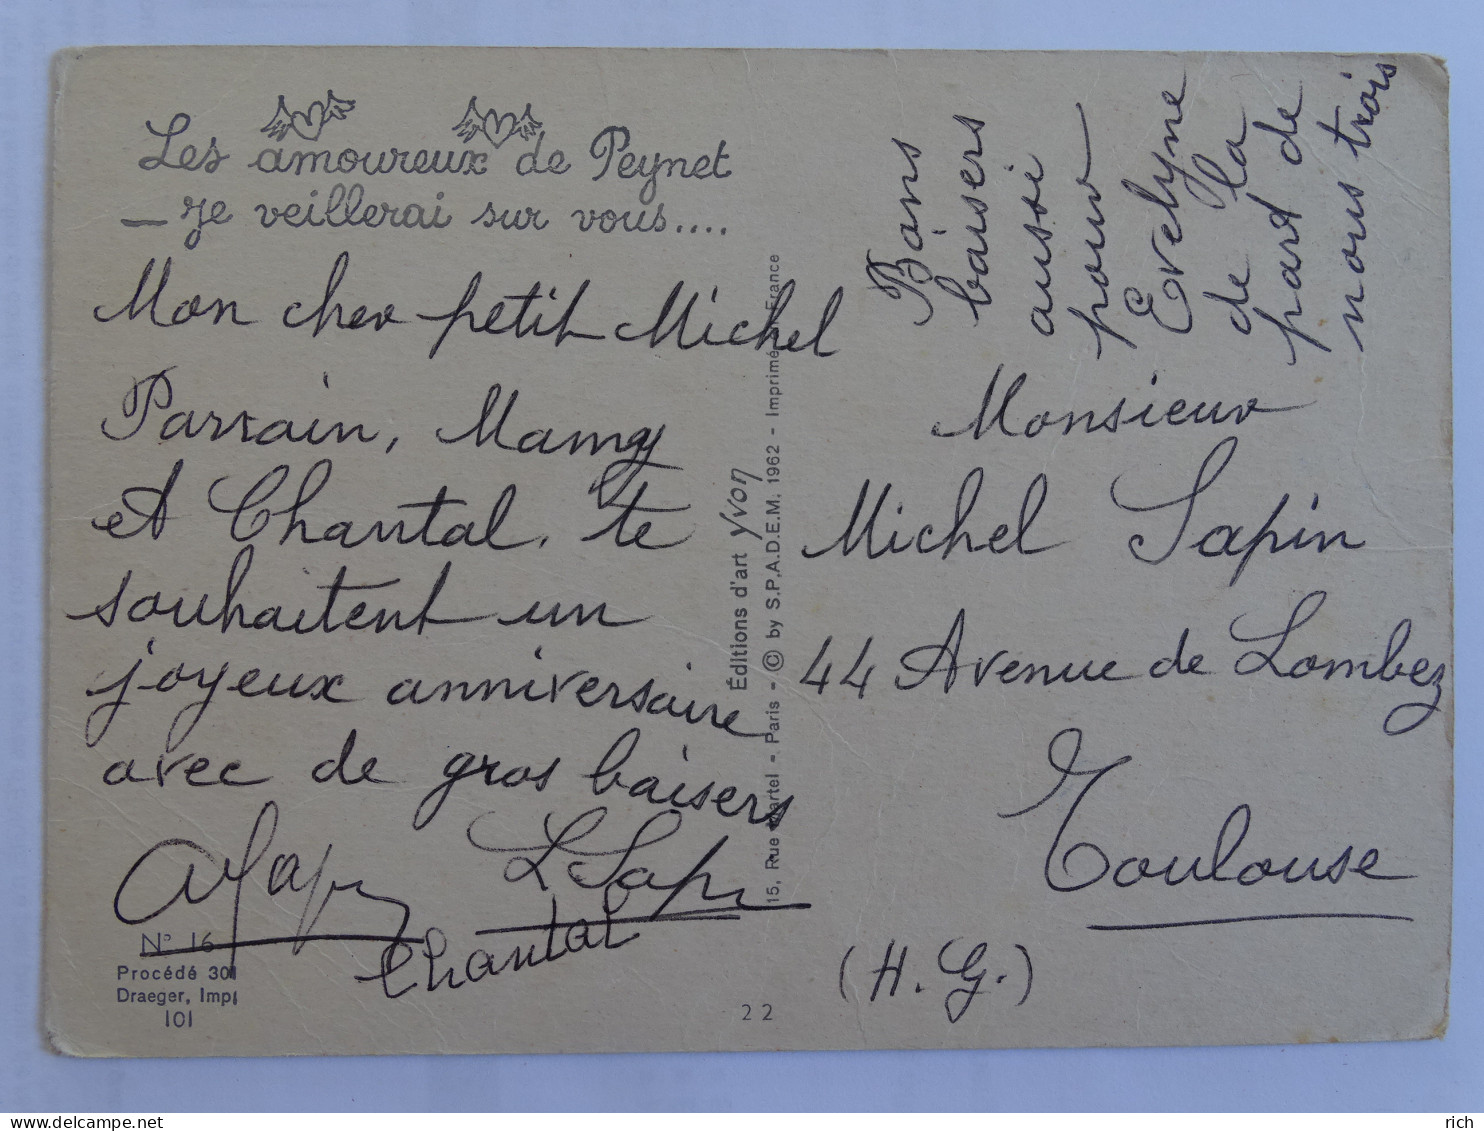 Les amoureux de Peynet
— je veillerai sur vous....
Mon cher petit Michel
Parrain, Mamy
et Chantal, te
souhaitent un
joyeux anniversaire
avec de gros baisers
L Sapin
Chantal
N° 16
Procédé 301
Draeger, Imp.
101
22
Éditions d'art Yvon
15, Rue Martel - Paris - © by S.P.A.D.E.M. 1962 - Imprimé en France
Bons
baisers
aussi
pour
Evelyne
de la
part de
nous trois
Monsieur
Michel Sapin
44 Avenue de Lombez
Toulouse
(H. G.)
rich